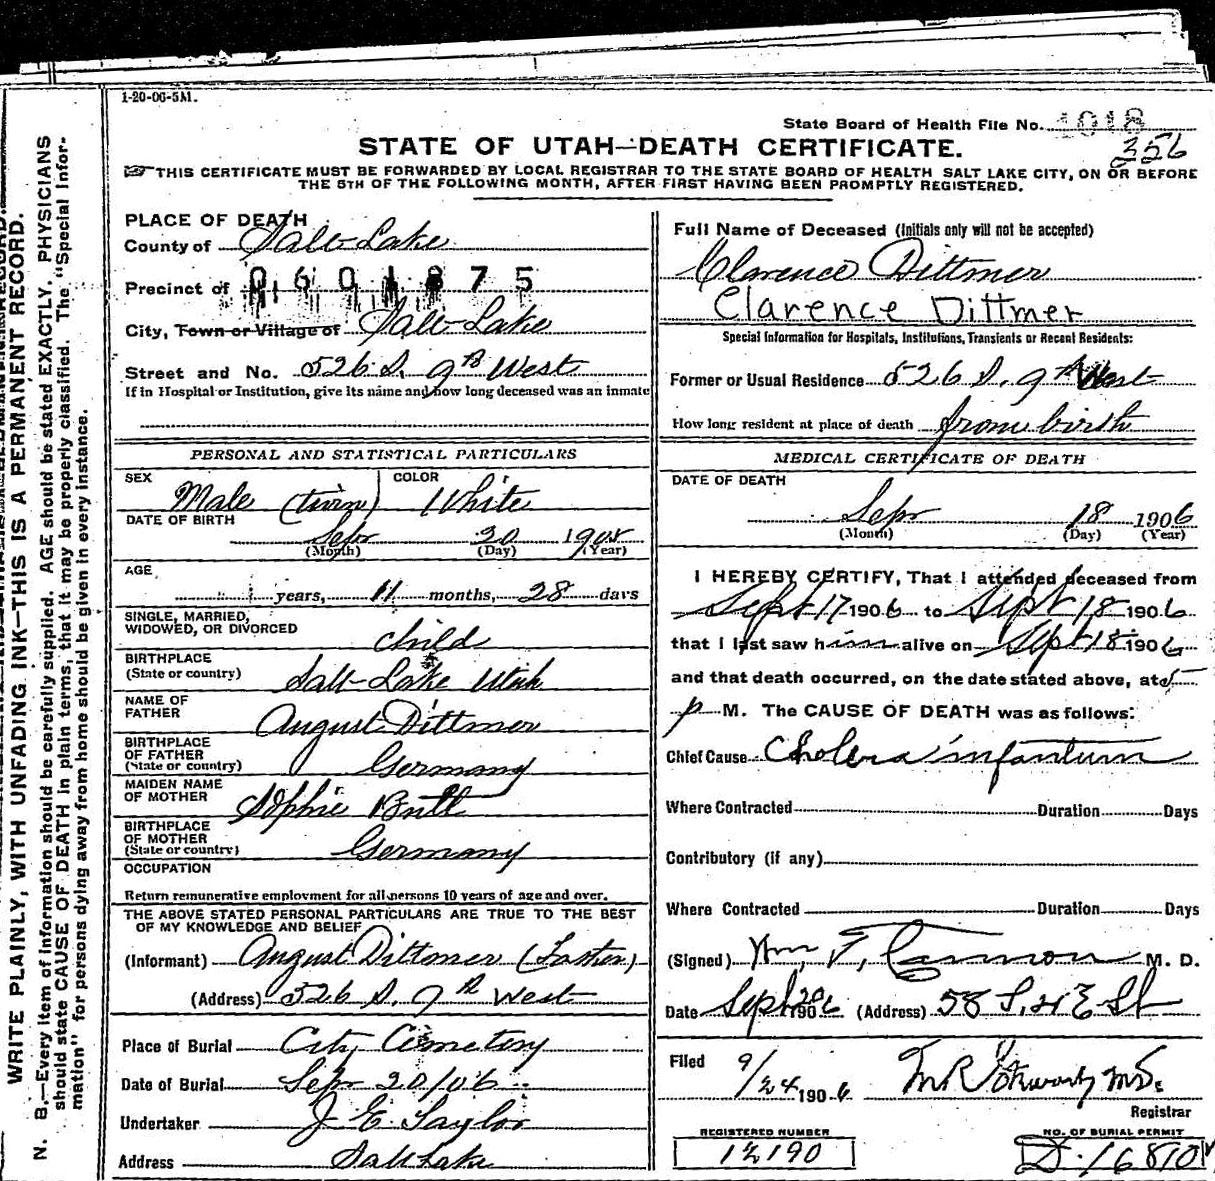 1-20-06-5M.
State Board of Health File No. 1018
356
STATE OF UTAH—DEATH CERTIFICATE.
THIS CERTIFICATE MUST BE FORWARDED BY LOCAL REGISTRAR TO THE STATE BOARD OF HEALTH SALT LAKE CITY, ON OR BEFORE
THE 5TH OF THE FOLLOWING MONTH, AFTER FIRST HAVING BEEN PROMPTLY REGISTERED.
WRITE PLAINLY, WITH UNFADING INK—THIS IS A PERMANENT RECORD.
N. B.—Every item of information should be carefully supplied. AGE should be stated EXACTLY. PHYSICIANS
should state CAUSE OF DEATH in plain terms, that it may be properly classified. The "Special Infor-
mation" for persons dying away from home should be given in every instance.
PLACE OF DEATH
County of Salt Lake
Precinct of 0601875
City, Town or Village of Salt Lake
Street and No. 526 S. 9th West
If in Hospital or Institution, give its name and how long deceased was an inmate
PERSONAL AND STATISTICAL PARTICULARS
SEX Male (twin) COLOR White
DATE OF BIRTH Sep 20
(Month) (Day) (Year)
AGE 1 years, 11 months, 28 days
SINGLE, MARRIED,
WIDOWED, OR DIVORCED child
BIRTHPLACE
(State or country) Salt Lake Utah
NAME OF
FATHER August Dittmer
BIRTHPLACE
OF FATHER
(State or country) Germany
MAIDEN NAME
OF MOTHER Sophie
BIRTHPLACE
OF MOTHER
(State or country) Germany
OCCUPATION
Return remunerative employment for all persons 10 years of age and over.
THE ABOVE STATED PERSONAL PARTICULARS ARE TRUE TO THE BEST
OF MY KNOWLEDGE AND BELIEF
(Informant) August Dittmer (Father)
(Address) 526 S. 9th West
Place of Burial City Cemetery
Date of Burial Sep 20/06
Undertaker J E Taylor
Address Salt Lake
Full Name of Deceased (Initials only will not be accepted)
Clarence Dittmer
Clarence Dittmer
Special Information for Hospitals, Institutions, Transients or Recent Residents:
Former or Usual Residence 526 S. 9th West
How long resident at place of death from birth
MEDICAL CERTIFICATE OF DEATH
DATE OF DEATH
Sep 18 1906
(Month) (Day) (Year)
I HEREBY CERTIFY, That I attended deceased from
Sept 17 1906 to Sept 18 1906
that I last saw him alive on Sept 18 1906
and that death occurred, on the date stated above, at 5
p M. The CAUSE OF DEATH was as follows:
Chief Cause Cholera infantum
Where Contracted Duration Days
Contributory (if any)
Where Contracted Duration Days
(Signed) Wm. T. Cannon M. D.
Date Sept 20 1906 (Address) 58 St
Filed 9/24 1906 M.D.
Registrar
REGISTERED NUMBER
NO. OF BURIAL PERMIT
D.16810